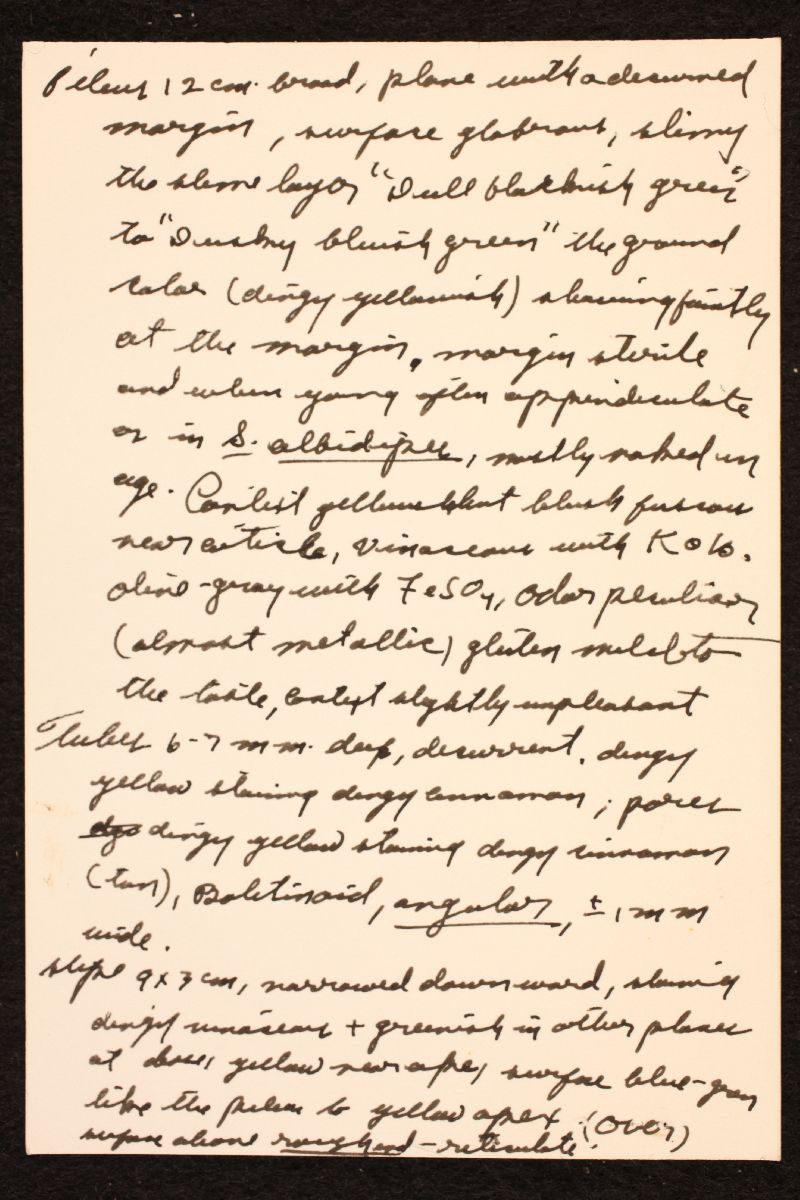 Pileus 12 cm. broad, plane with a decurved
margin, surface glabrous, slimy
the slime layer "Dull blackish green"
to "Dusky bluish green" the ground
color (dingy yellowish) showing faintly
at the margin, margin sterile
and when young often appendiculate
as in S. albidipes, mostly naked in
age. Context yellow but blush fuscous
near cuticle, vinaceous with KOH.
olive-gray with FeSO4, odor peculiar
(almost metallic) gluten mild to
the taste, context slightly unpleasant
Tubes 6-7 mm. deep, decurrent, dingy
yellow staining dingy cinnamon; pores
dingy yellow staining dingy cinnamon
(tan), Boletinoid, angular, ± 1 mm
wide.
stipe 9 x 3 cm, narrowed downward, staining
dingy vinaceous + greenish in other places
at base, yellow near apex, surface blue-green
like the pileus to yellow apex. (Over)
surface above rough and-reticulate.